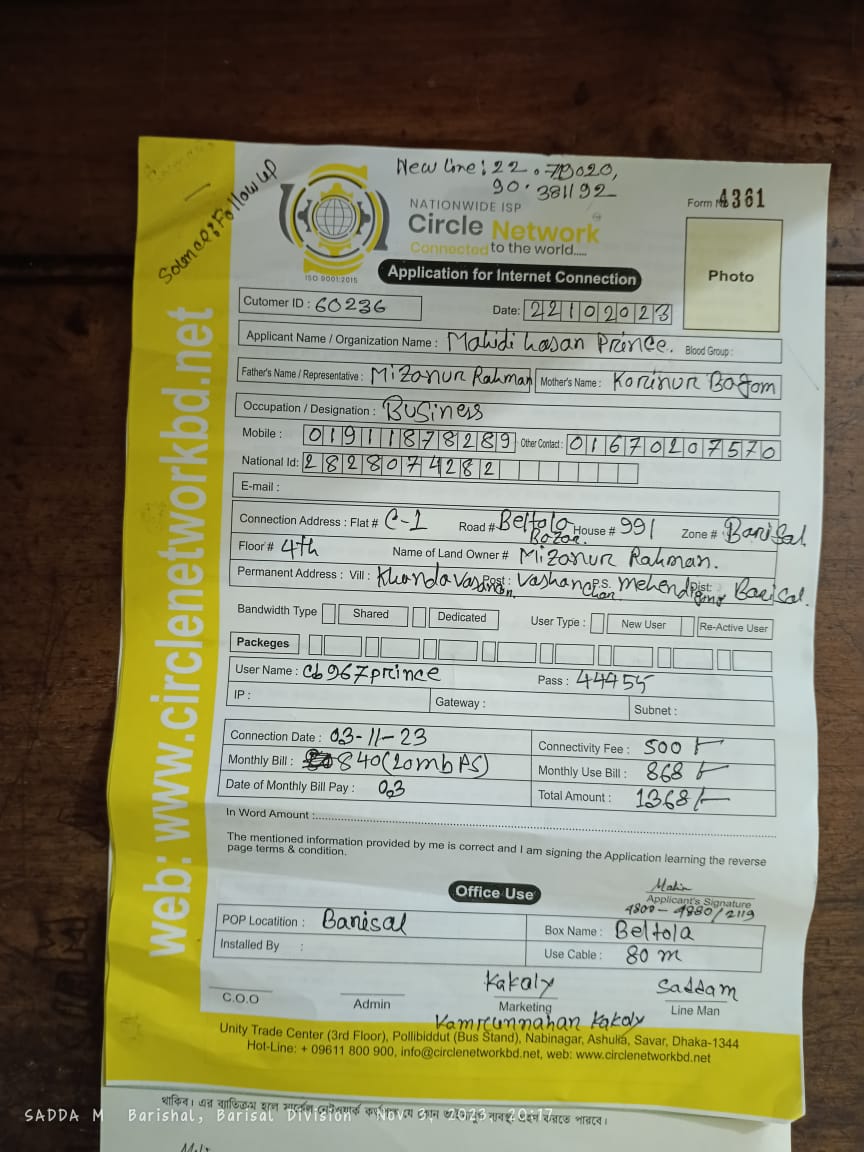 New line: 22.70020,
90.381192
Follow up
NATIONWIDE ISP
Circle Network
Connected to the world.....
ISO 9001:2015
Form No 4361
Photo
Application for Internet Connection
Cutomer ID : 60236
Date: 22102023
Applicant Name / Organization Name : Mahidi hasan Prince. Blood Group :
Father's Name / Representative : Mizonur Rahman Mother's Name : Korinur Bagom
Occupation / Designation : Business
Mobile : 01911878289 Other Contact : 01670207570
National Id: 2828074282
E-mail :
Connection Address : Flat # C-1 Road # Beltola Bazar. House # 991 Zone # Barisal.
Floor # 4th Name of Land Owner # Mizonur Rahman.
Permanent Address : Vill : Post : Vashanchan P.S. Dist: Barisal.
Bandwidth Type Shared Dedicated User Type : New User Re-Active User
Packeges
User Name : cb967prince Pass : 44455
IP : Gateway : Subnet :
Connection Date : 03-11-23 Connectivity Fee : 500/-
Monthly Bill : 840(20mbps) Monthly Use Bill : 868/-
Date of Monthly Bill Pay : 03 Total Amount : 1368/-
In Word Amount :
The mentioned information provided by me is correct and I am signing the Application learning the reverse
page terms & condition.
Office Use
Mahin
Applicant's Signature
4800-4880/2119
POP Locatition : Barisal Box Name : Beltola
Installed By : Use Cable : 80 m
C.O.O Admin Kakoly Marketing Saddam Line Man
Kamrunnahan Kakoly
Unity Trade Center (3rd Floor), Pollibiddut (Bus Stand), Nabinagar, Ashulia, Savar, Dhaka-1344
Hot-Line: + 09611 800 900, info@circlenetworkbd.net, web: www.circlenetworkbd.net
web: www.circlenetworkbd.net
থাকিব। এর ব্যতিক্রম হলে সার্কেল নেটওয়ার্ক
SADDA M Barishal, Barisal Division Nov 3, 2023, 20:17